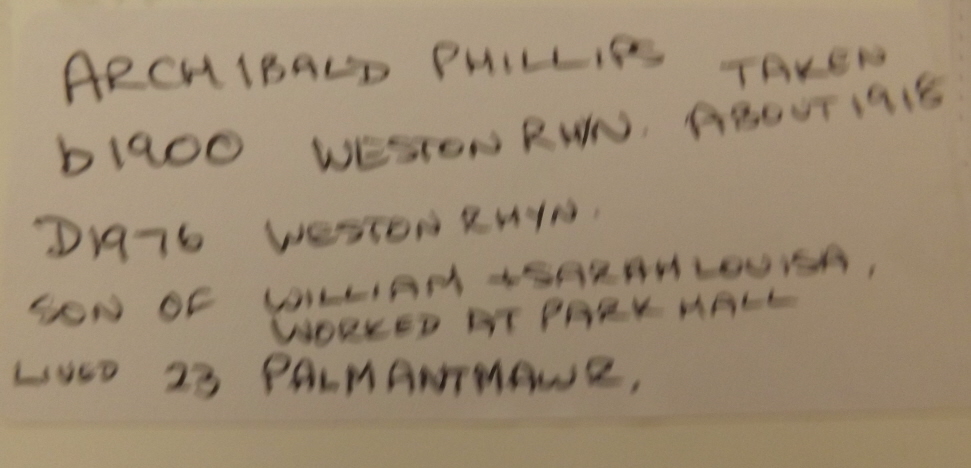 ARCHIBALD PHILLIPS TAKEN
b1900 WESTON RHYN. ABOUT 1918
D1976 WESTON RHYN.
SON OF WILLIAM + SARAH LOUISA,
WORKED AT PARK HALL
LIVED 23 PALMANTMAWR,